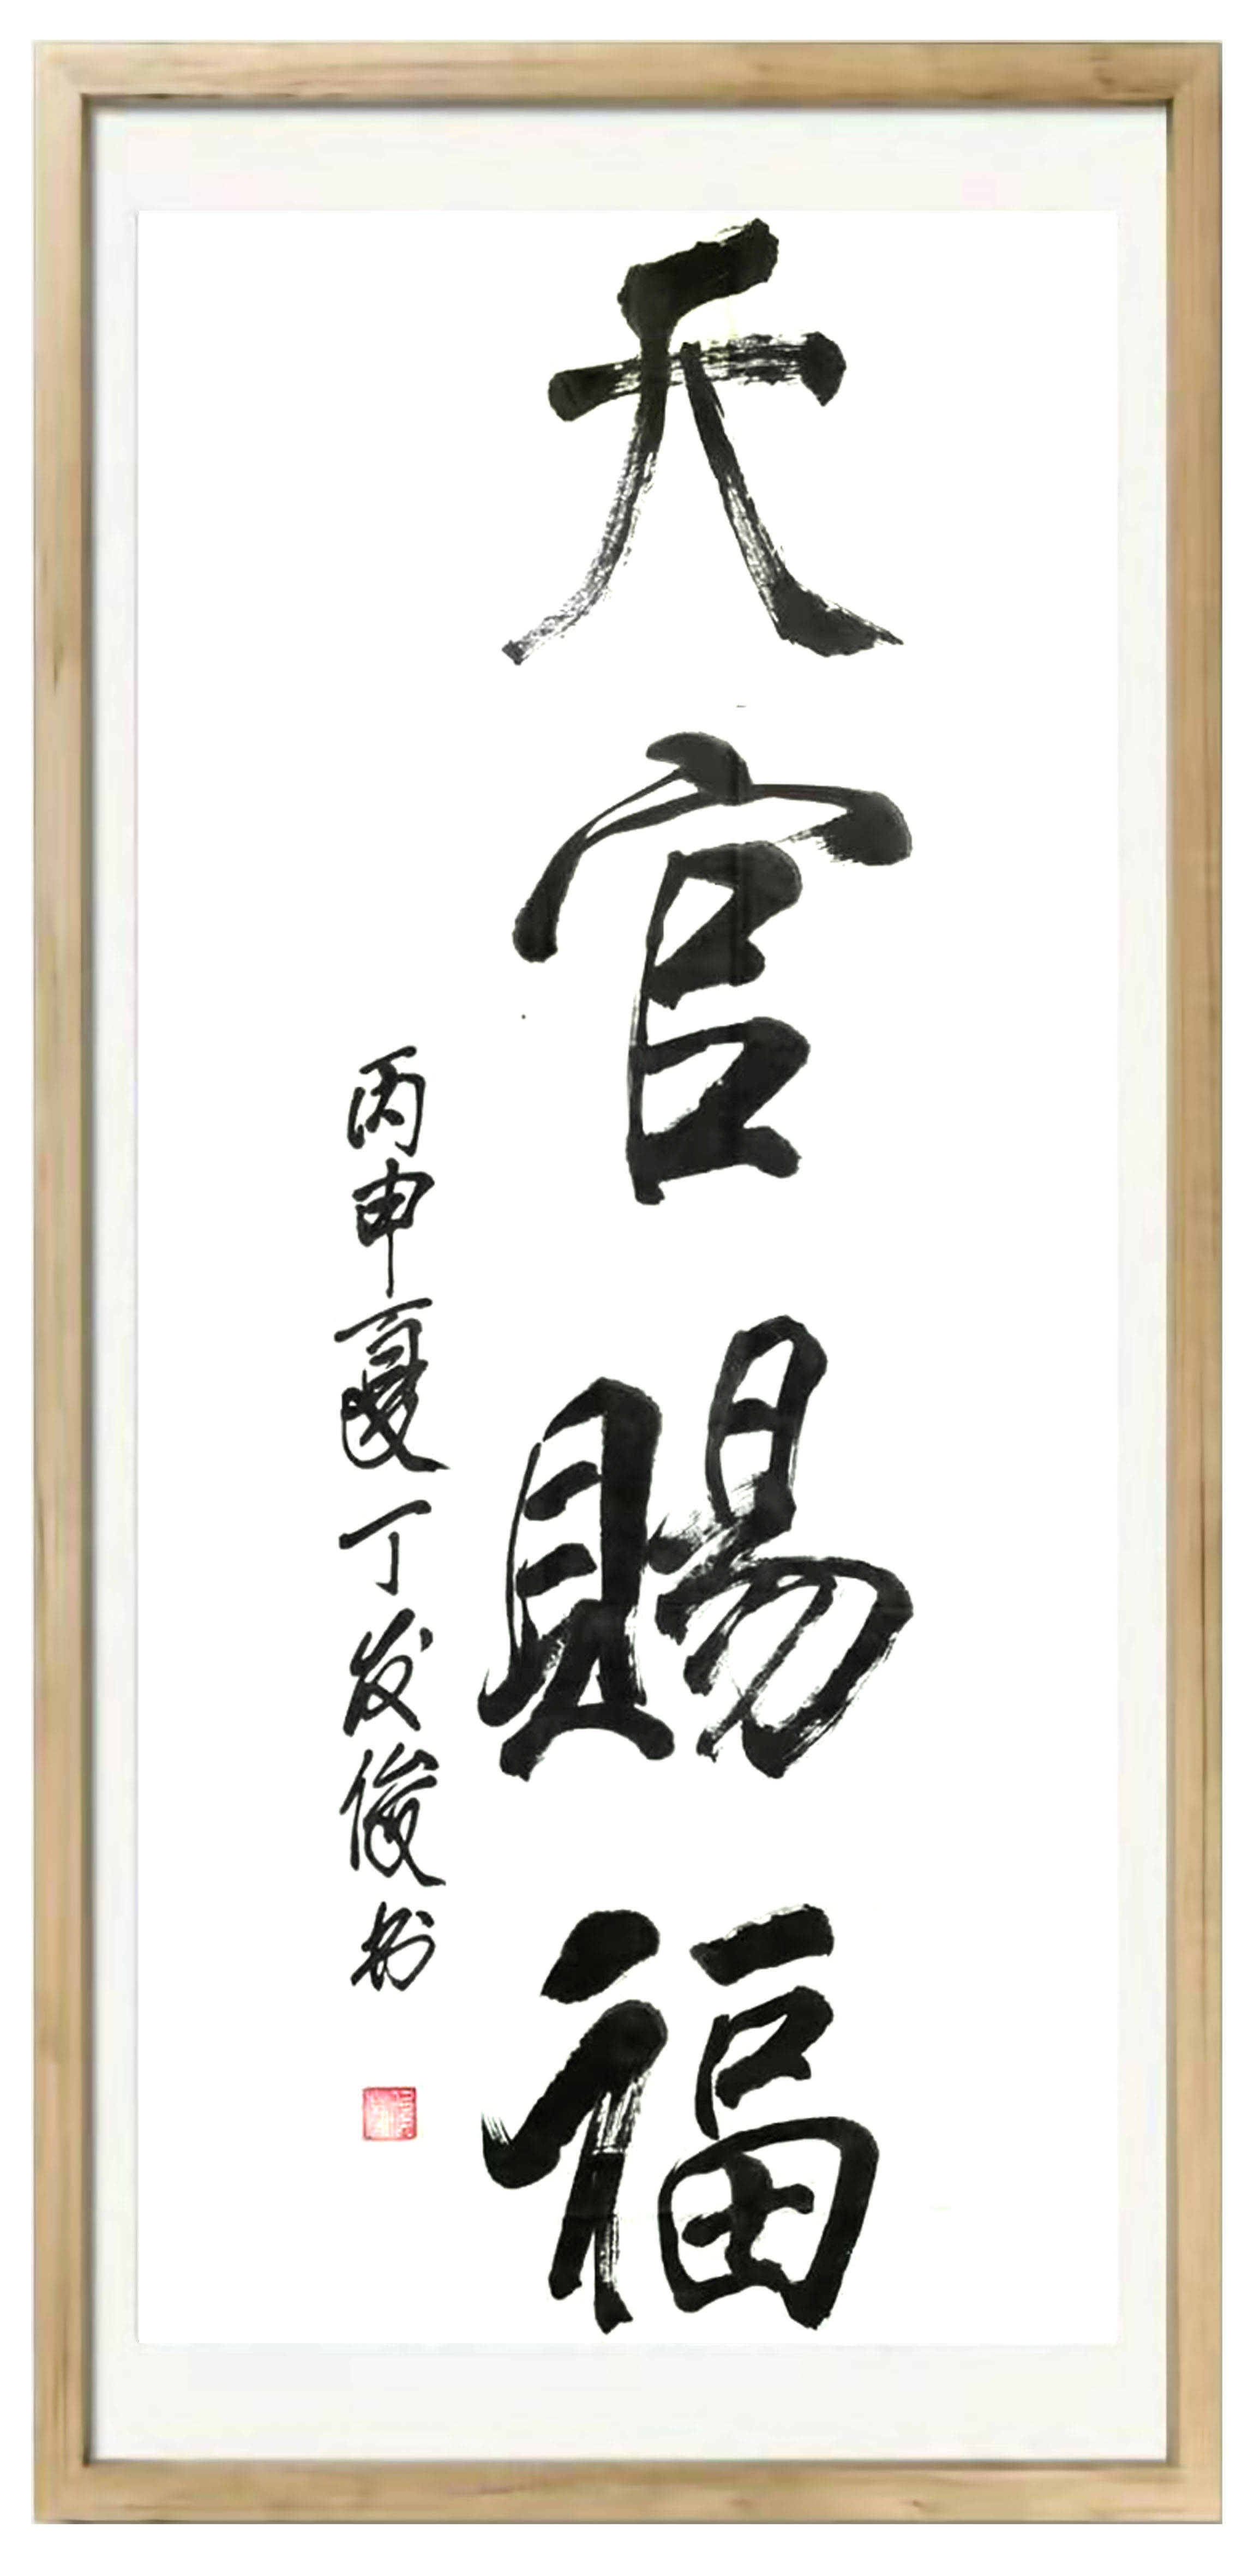 天官賜福
丙申夏丁发俊书